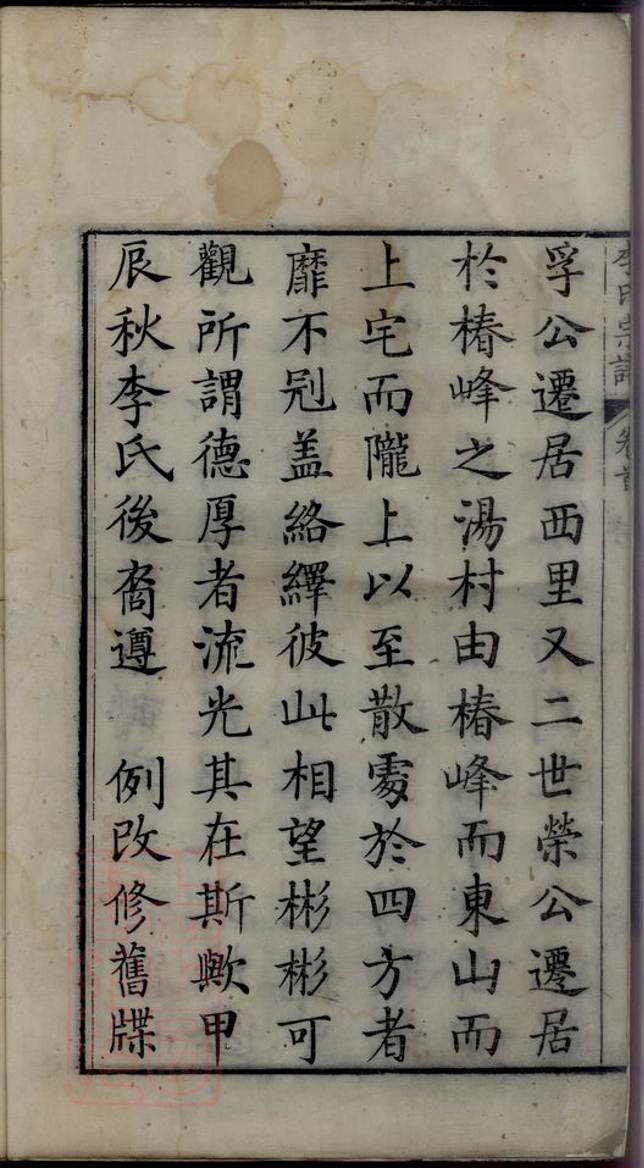 李氏宗譜 卷首
孚公遷居西里又二世榮公遷居
於椿峰之湯村由椿峰而東山而
上宅而隴上以至散處於四方者
靡不冠盖絡繹彼此相望彬彬可
觀所謂德厚者流光其在斯歟甲
辰秋李氏後裔遵 例改修舊牒